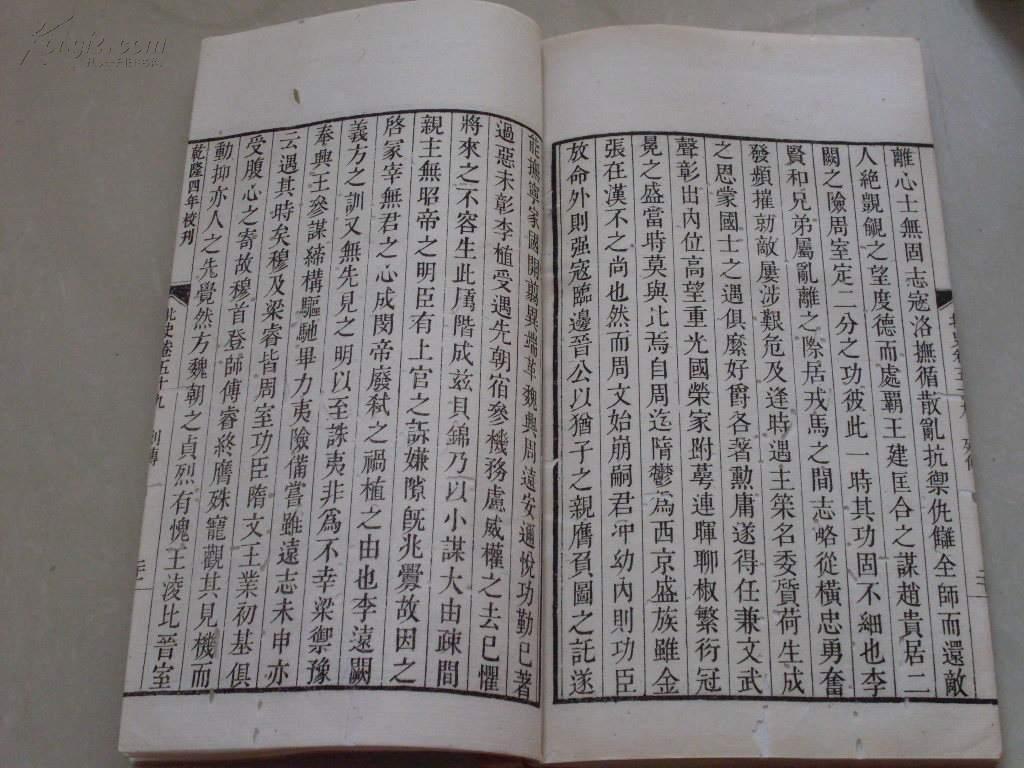 離心士無固志寇洛撫循散亂抗禦仇讎全師而還敵
人絶覬覦之望度德而處霸王建匡合之謀趙貴居二
闕之險周室定二分之功彼此一時其功固不細也李
賢和兄弟屬亂離之際居戎馬之間志略從橫忠勇奮
發頻摧勍敵屢涉艱危及逢時遇主策名委質荷生成
之恩蒙國士之遇俱縻好爵各著勲庸遂得任兼文武
聲彰出內位高望重光國榮家跗萼連暉聊椒繁衍冠
冕之盛當時莫與比焉自周迄隋鬱爲西京盛族雖金
張在漢不之尚也然而周文始崩嗣君沖幼內則功臣
放命外則强寇臨邊晉公以猶子之親膺負圖之託遂
能撫寧家國開翦異端革魏興周遠安邇悅功勤已著
過惡未彰李植受遇先朝宿參機務慮威權之去已懼
將來之不容生此厲階成兹貝錦乃以小謀大由疎間
親主無昭帝之明臣有上官之訴嫌隙旣兆釁故因之
啓冢宰無君之心成閔帝廢弒之禍植之由也李遠闕
義方之訓又無先見之明以至誅夷非爲不幸梁禦豫
奉興王參謀締構驅馳畢力夷險備嘗雖遠志未申亦
云遇其時矣穆及梁睿皆周室功臣隋文王業初基俱
受腹心之寄故穆首登師傅睿終膺殊寵觀其見機而
動抑亦人之先覺然方魏朝之貞烈有愧王凌比晉室
乾隆四年校刊
北史卷五十九 列傳